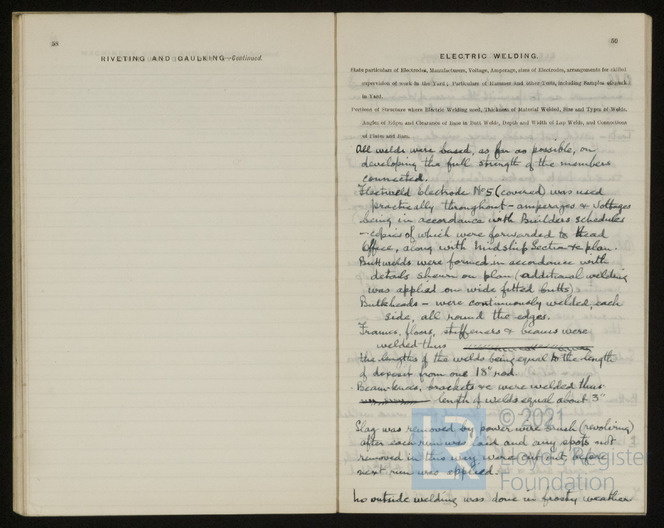 58
RIVETING AND CAULKING—Continued.
59
ELECTRIC WELDING.
State particulars of Electrodes, Manufacturers, Voltage, Amperage, sizes of Electrodes, arrangements for skilled
supervision of work in the Yard; Particulars of Hammer and other Tests, including Samples
in Yard.
Portions of Structure where Electric Welding used, Thickness of Material Welded, Size and Types of Welds,
Angles of Edges and Clearance of Bars in Butt Welds, Depth and Width of Lap Welds, and Connections
of Plates and Bars.
All welds were based, as far as possible, on
developing the full strength of the members
connected.
Fleetweld Electrode No 5 (covered) was used
practically throughout - amperages & voltages
being in accordance with Builders schedules
- copies of which were forwarded to Head
Office, along with Midship Section & plan.
Buttwelds were formed in accordance with
details shewn on plan (additional welding
was applied on wide fitted butts)
Bulkheads - were continuously welded, each
side, all round the edges.
Frames, floors, stiffeners & beams were
welded thus
the lengths of the welds being equal to the length
of deposit from one 18" rod.
Beam knees, brackets &c were welded thus
length of welds equal about 3"
Slag was removed by power wire brush (revolving)
after each run was laid and any spots not
removed in this way were cut out, before
next run was applied.
No outside welding was done in frosty weather
© 2021
LR
Lloyd's Register
Foundation